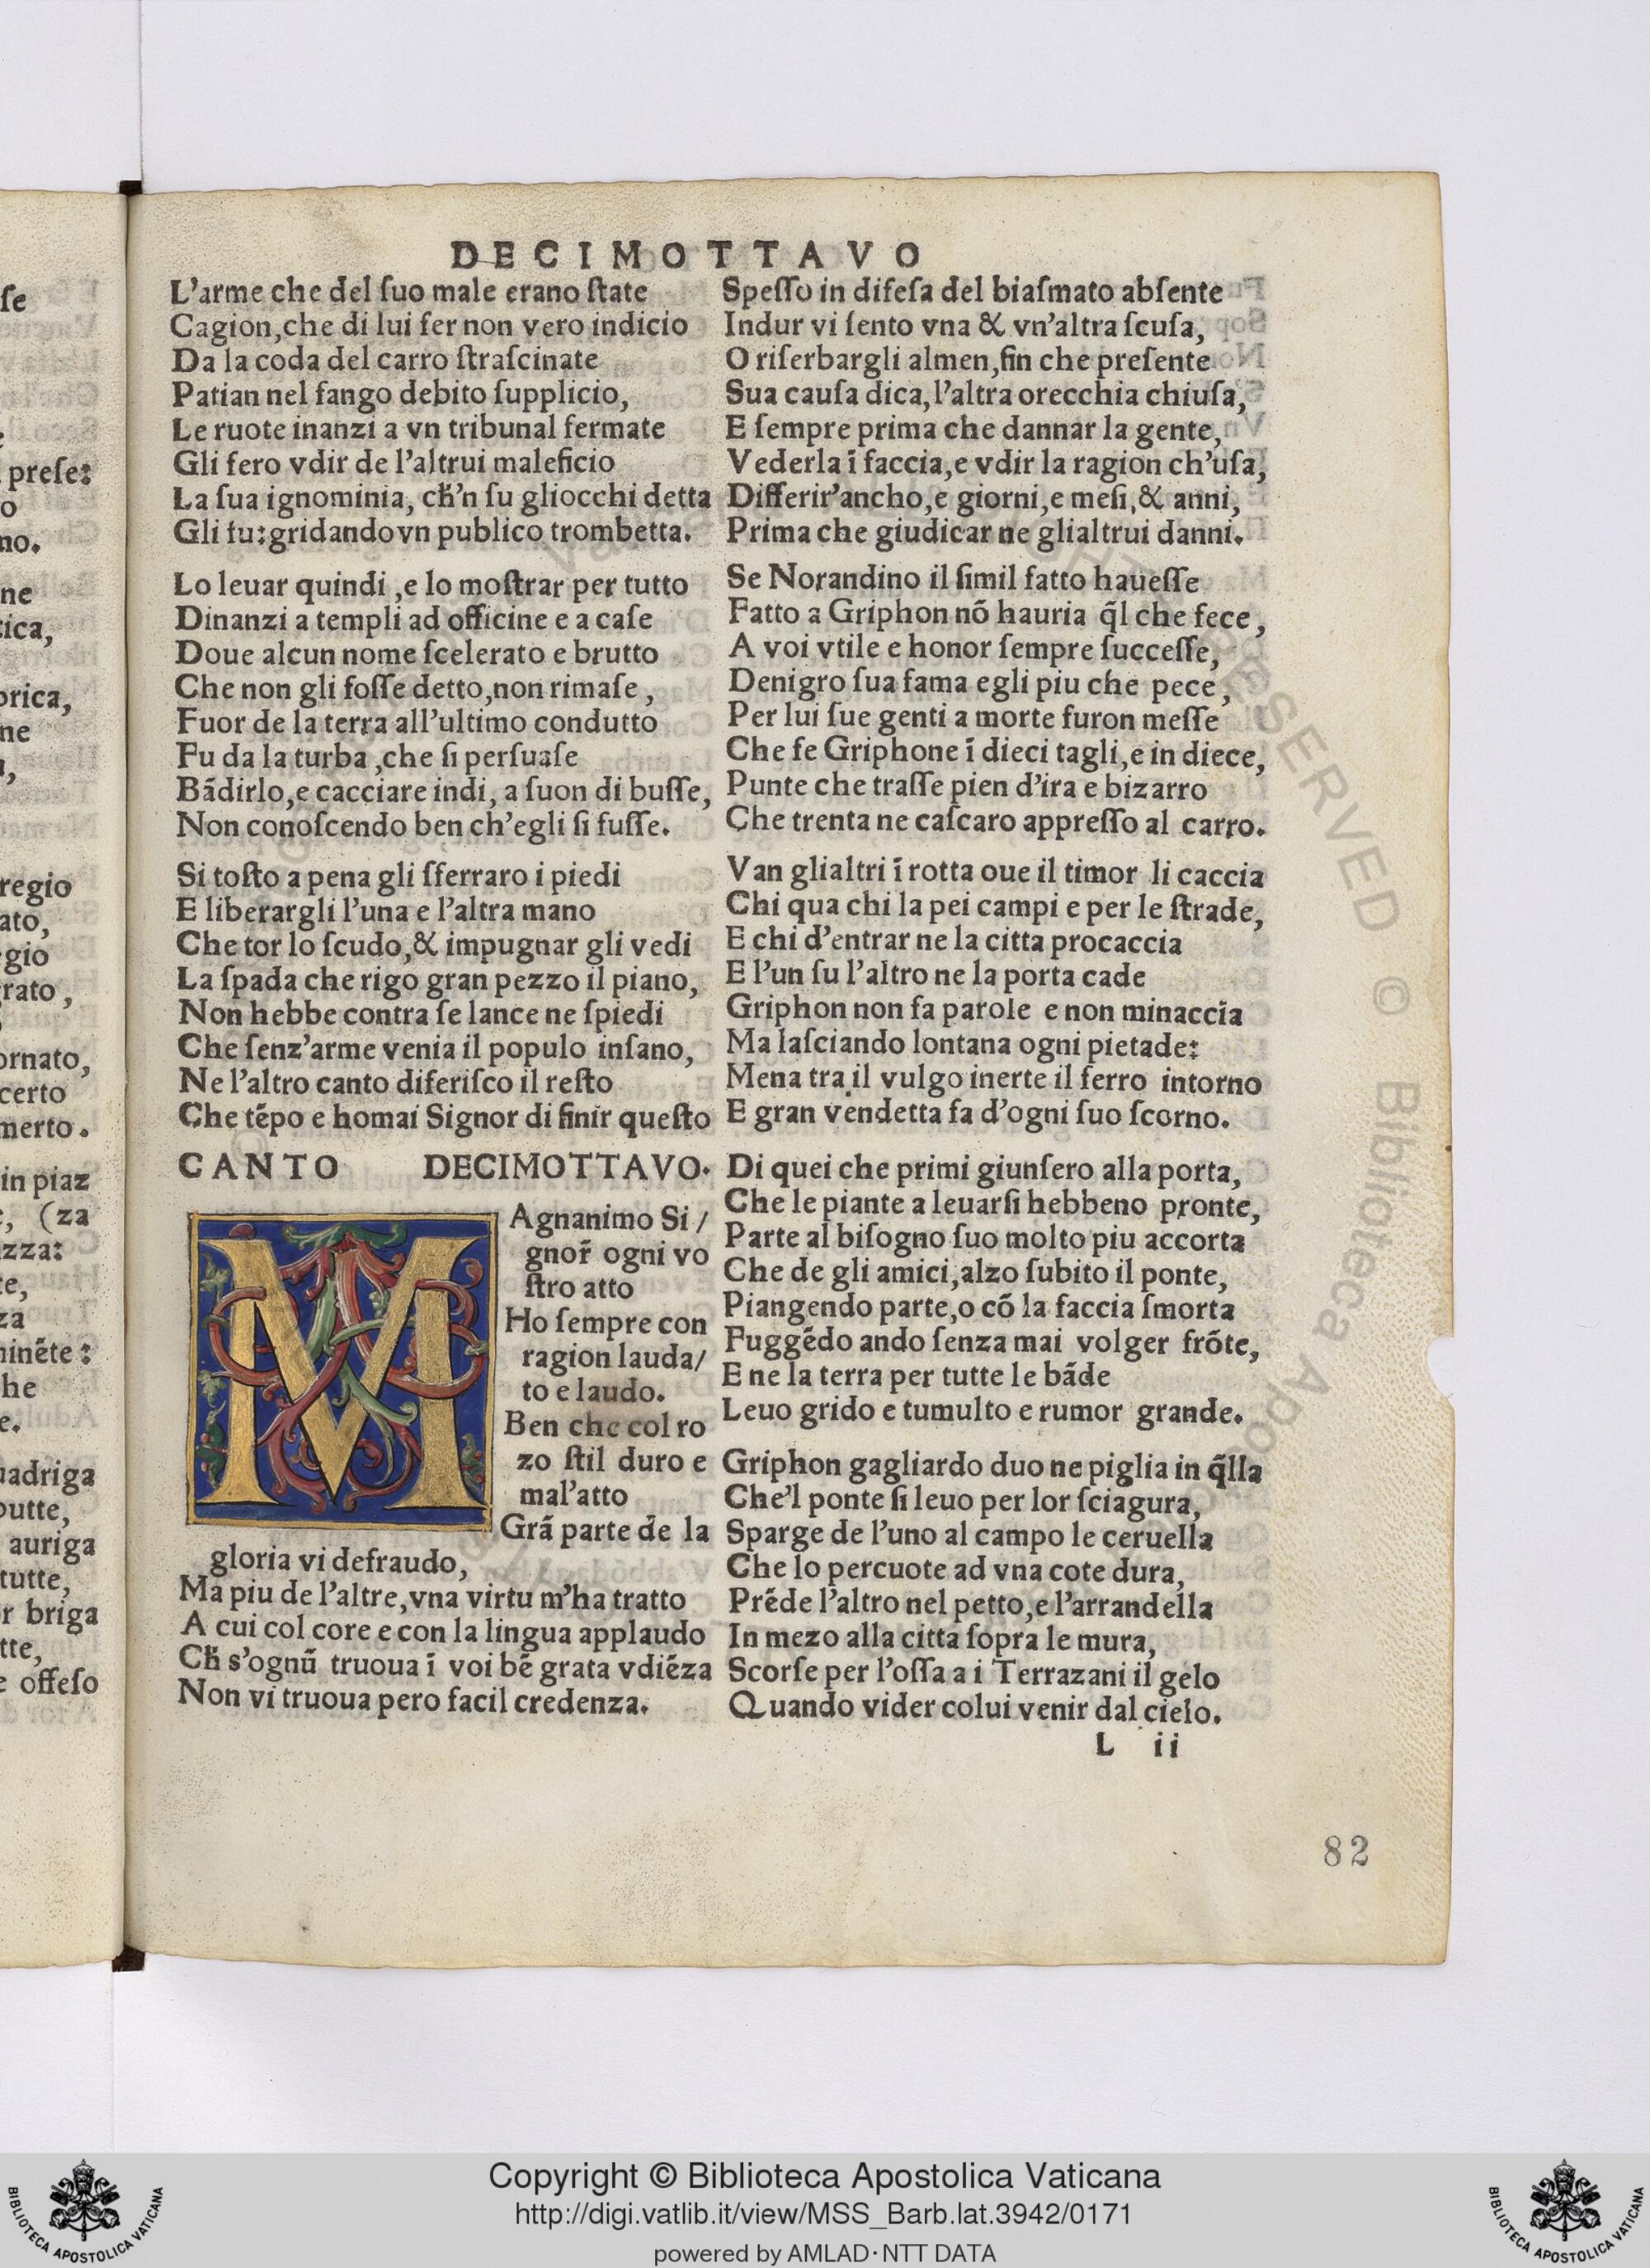 ſe
preſe:
o
no.
ne
tica,
orica,
ne
regio
ato,
gio
rato,
ornato,
certo
merto.
in piaz
(za
zza:
te,
za
ninẽte:
he
e.
uadriga
butte,
auriga
tutte,
r briga
tte,
e offeſo
DECIMOTTAVO
L'arme che del ſuo male erano ſtate
Cagion, che di lui fer non vero indicio
Da la coda del carro ſtraſcinate
Patian nel fango debito ſupplicio,
Le ruote inanzi a vn tribunal fermate
Gli fero vdir de l'altrui maleficio
La ſua ignominia, ch̃'n ſu gliocchi detta
Gli fu: gridando vn publico trombetta.
Lo leuar quindi, e lo moſtrar per tutto
Dinanzi a templi ad officine e a caſe
Doue alcun nome ſcelerato e brutto
Che non gli foſſe detto, non rimaſe,
Fuor de la terra all'ultimo condutto
Fu da la turba, che ſi perſuaſe
Bãdirlo, e cacciare indi, a ſuon di buſſe,
Non conoſcendo ben ch'egli ſi fuſſe.
Si toſto a pena gli sferraro i piedi
E liberargli l'una e l'altra mano
Che tor lo ſcudo, & impugnar gli vedi
La ſpada che rigo gran pezzo il piano,
Non hebbe contra ſe lance ne ſpiedi
Che ſenz'arme venia il populo inſano,
Ne l'altro canto diferiſco il reſto
Che tẽpo e homai Signor di finir queſto
CANTO DECIMOTTAVO.
MAgnanimo Si/
gnor̃ ogni vo
ſtro atto
Ho ſempre con
ragion lauda/
to e laudo.
Ben che col ro
zo ſtil duro e
mal'atto
Grã parte de la
gloria vi defraudo,
Ma piu de l'altre, vna virtu m'ha tratto
A cui col core e con la lingua applaudo
Ch̃ s'ognũ truoua ĩ voi bẽ grata vdiẽza
Non vi truoua pero facil credenza.
Speſſo in difeſa del biaſmato abſente
Indur vi ſento vna & vn'altra ſcuſa,
O riſerbargli almen, fin che preſente
Sua cauſa dica, l'altra orecchia chiuſa,
E ſempre prima che dannar la gente,
Vederla ĩ faccia, e vdir la ragion ch'uſa,
Differir'ancho, e giorni, e meſi, & anni,
Prima che giudicar ne glialtrui danni.
Se Norandino il ſimil fatto haueſſe
Fatto a Griphon nõ hauria q̃l che fece,
A voi vtile e honor ſempre ſucceſſe,
Denigro ſua fama egli piu che pece,
Per lui ſue genti a morte furon meſſe
Che fe Griphone ĩ dieci tagli, e in diece,
Punte che traſſe pien d'ira e bizarro
Che trenta ne caſcaro appreſſo al carro.
Van glialtri ĩ rotta oue il timor li caccia
Chi qua chi la pei campi e per le ſtrade,
E chi d'entrar ne la citta procaccia
E l'un ſu l'altro ne la porta cade
Griphon non fa parole e non minaccia
Ma laſciando lontana ogni pietade:
Mena tra il vulgo inerte il ferro intorno
E gran vendetta fa d'ogni ſuo ſcorno.
Di quei che primi giunſero alla porta,
Che le piante a leuarſi hebbeno pronte,
Parte al biſogno ſuo molto piu accorta
Che de gli amici, alzo ſubito il ponte,
Piangendo parte, o cõ la faccia ſmorta
Fuggẽdo ando ſenza mai volger frõte,
E ne la terra per tutte le bãde
Leuo grido e tumulto e rumor grande.
Griphon gagliardo duo ne piglia in q̃lla
Che'l ponte ſi leuo per lor ſciagura,
Sparge de l'uno al campo le ceruella
Che lo percuote ad vna cote dura,
Prẽde l'altro nel petto, e l'arrandella
In mezo alla citta ſopra le mura,
Scorſe per l'oſſa a i Terrazani il gelo
Quando vider colui venir dal cielo.
L ii
82
Copyright © Biblioteca Apostolica Vaticana
http://digi.vatlib.it/view/MSS_Barb.lat.3942/0171
powered by AMLAD·NTT DATA
BIBLIOTECA APOSTOLICA VATICANA
BIBLIOTECA APOSTOLICA VATICANA